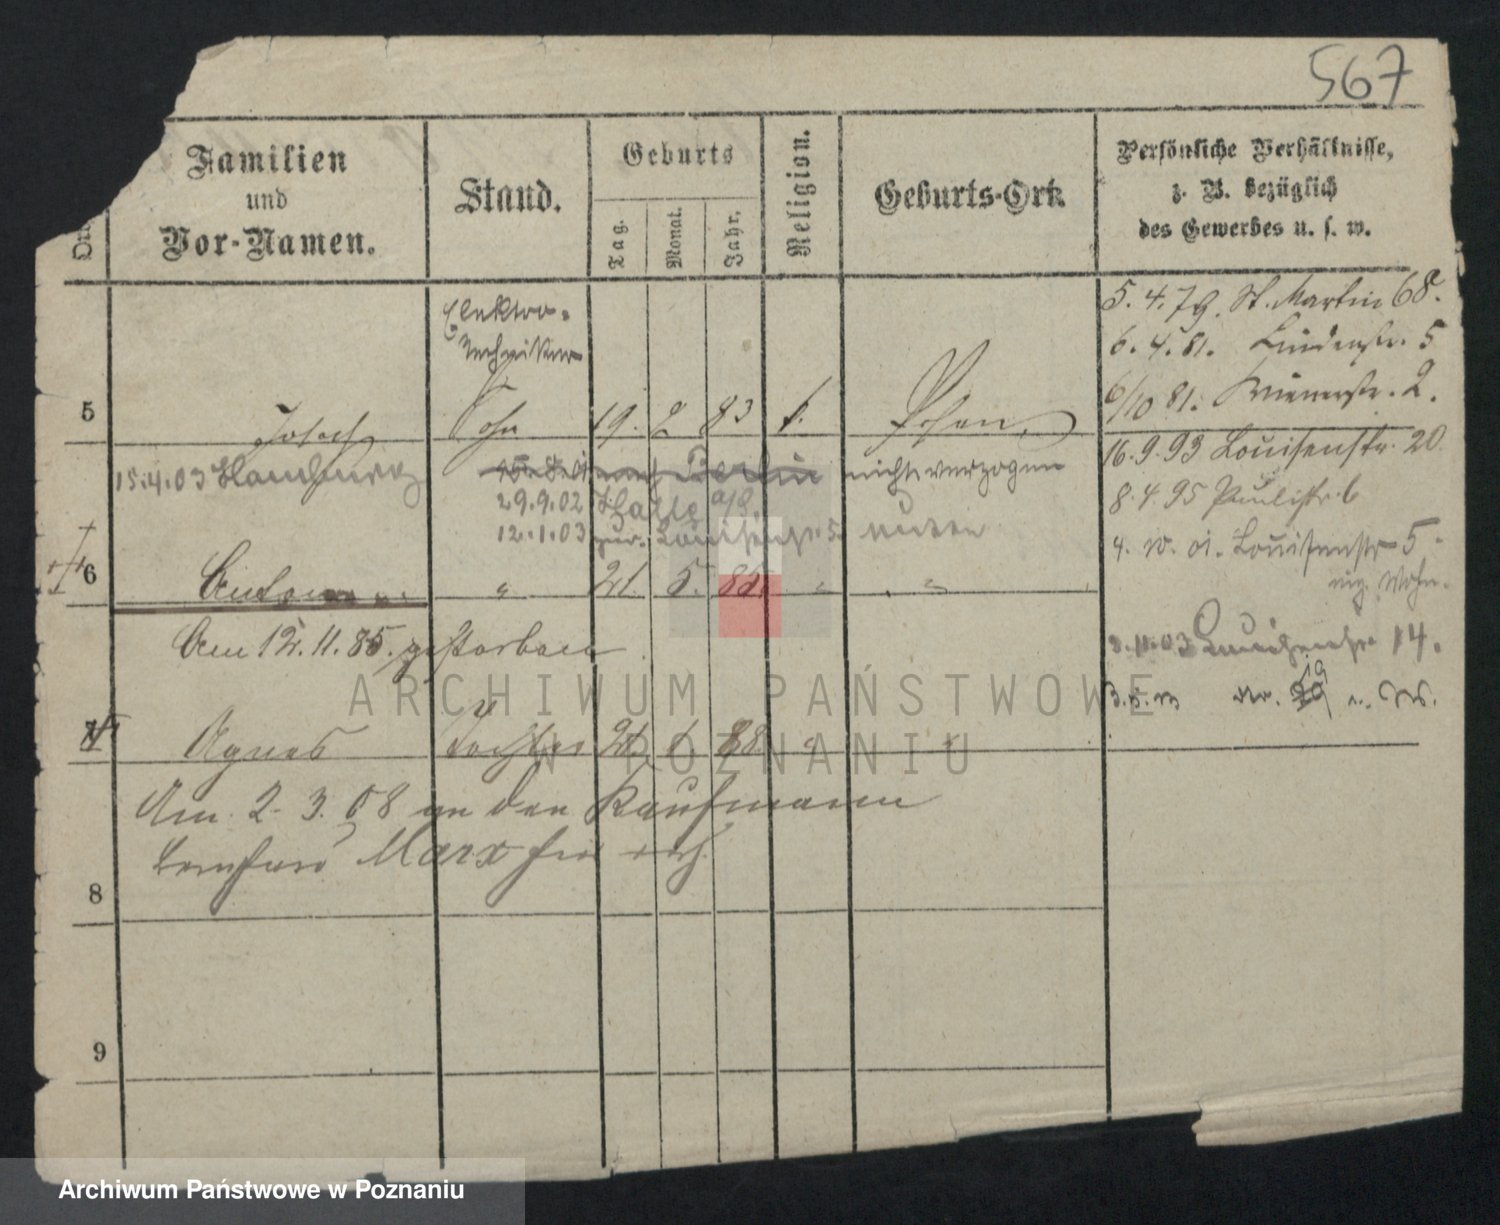 567
Familien
und
Vor-Namen.
Stand.
Geburts
Tag.
Monat.
Jahr.
Religion.
Geburts-Ort.
Persönliche Verhältnisse,
z. B. bezüglich
des Gewerbes u. s. w.
Elektro-
techniker
5 Josef Sohn 19. 2 83 Posen
15.4.03 Hamburg
nach Berlin nicht verzogen
29.9.02 Halle a/S.
12.1.03 zur. Louisenstr. 5
6 21. 5. 85.
Am 12. 11. 85. gestorben
7 Agnes Tochter 88
Am 2. 3. 08 an den Kaufmann
Bernhard Marx
8
9
5. 4. 79. St. Martin 68.
6. 4. 81. Lindenstr. 5
6/10 81. Wienerstr. 2.
16. 9. 93 Louisenstr. 20
8. 4. 95 Paulistr. 6
4. 10. 01. Louisenstr 5
14.
19
ARCHIWUM PAŃSTWOWE
W POZNANIU
Archiwum Państwowe w Poznaniu